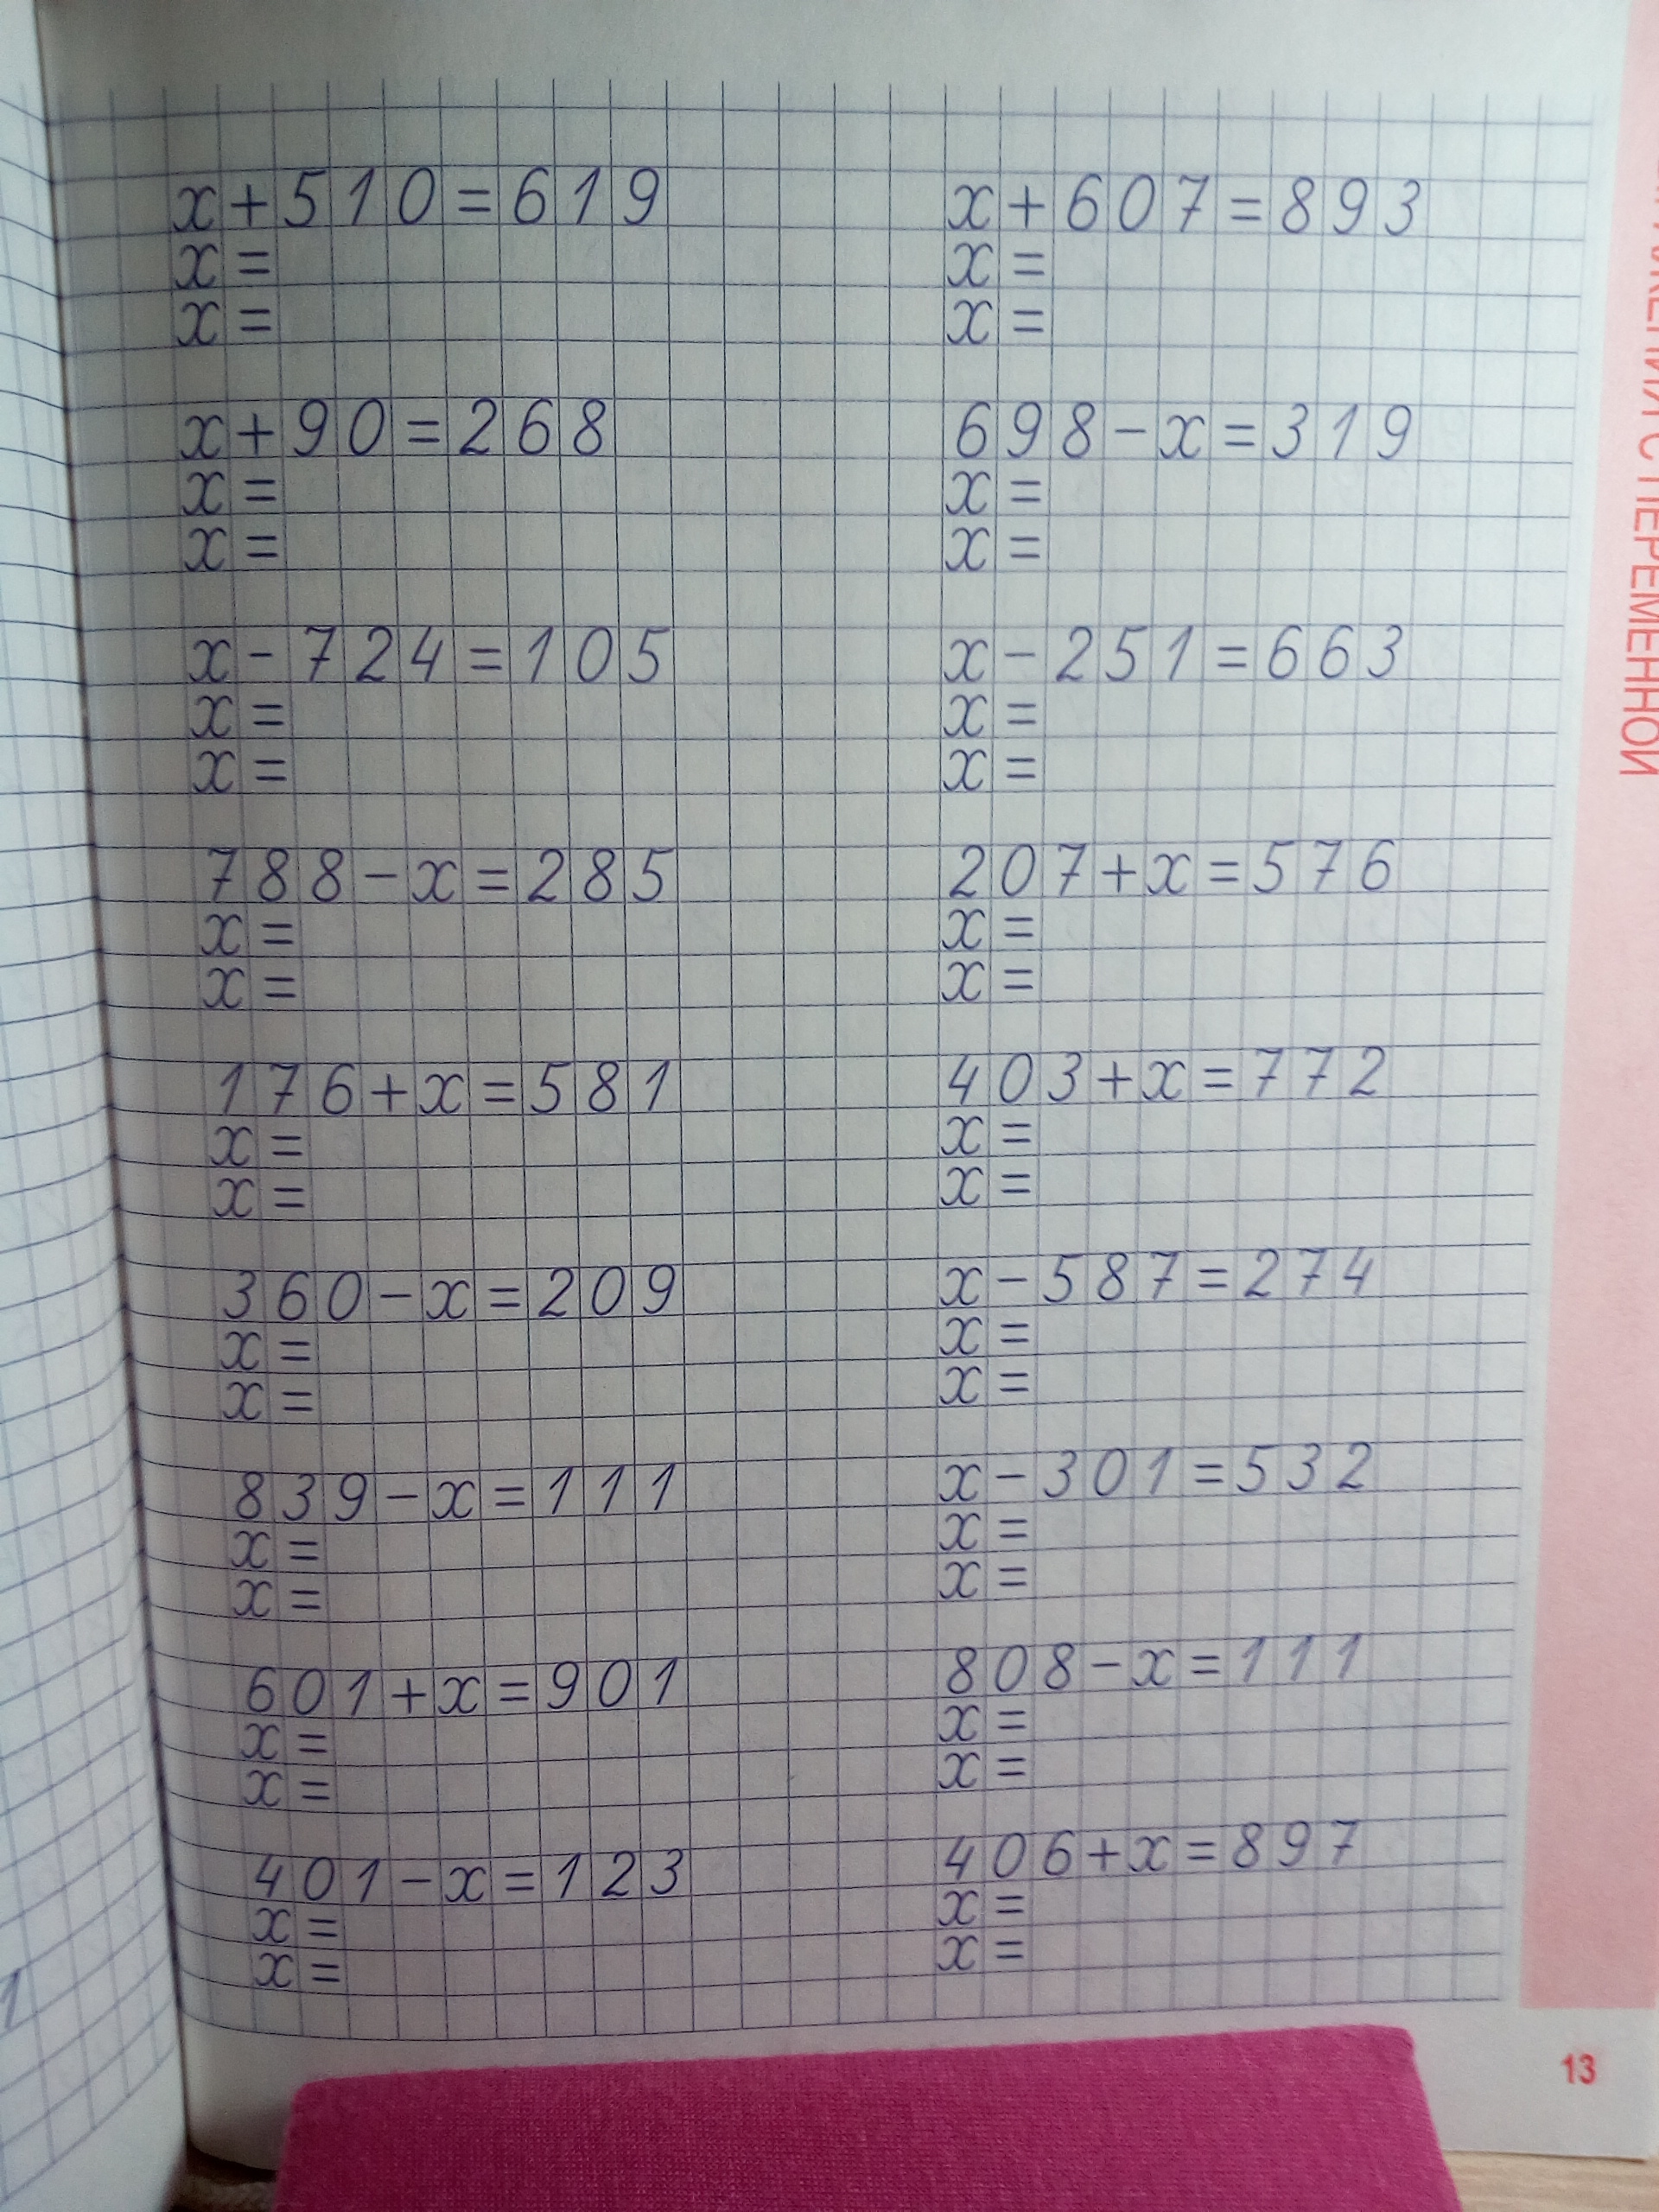 x+510=619
x=
x=
x+90=268
x=
x=
x-724=105
x=
x=
788-x=285
x=
x=
176+x=581
x=
x=
360-x=209
x=
x=
839-x=111
x=
x=
601+x=901
x=
x=
401-x=123
x=
x=
x+607=893
x=
x=
698-x=319
x=
x=
x-251=663
x=
x=
207+x=576
x=
x=
403+x=772
x=
x=
x-587=274
x=
x=
x-301=532
x=
x=
808-x=111
x=
x=
406+x=897
x=
x=
С ПЕРЕМЕННОЙ
13
1